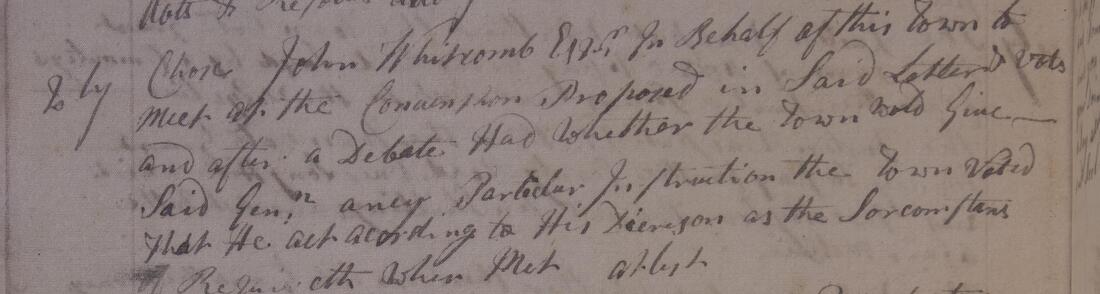 2ly Chose John Whitcomb Esqr. In Behalf of this Town to
meet at the Convension Proposed in Said Letter Vots
and after a Debate Had Whether the Town wold Give
Said Genn. aney Particlar Instruction the Town Voted
that He act acording to His Dicreson as the Sorcomstans
Requireeth When Met